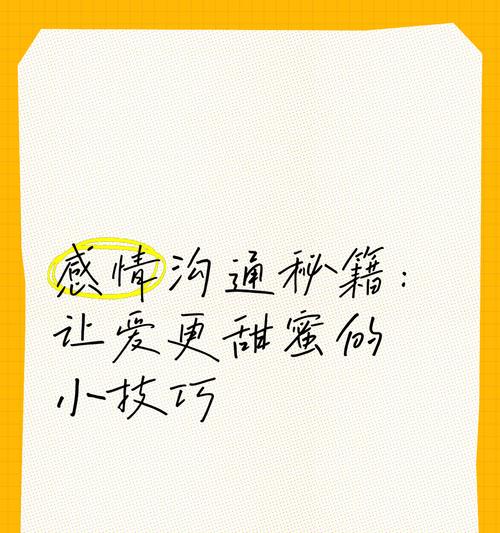 感情沟通秘籍：
让爱更甜蜜的
小技巧